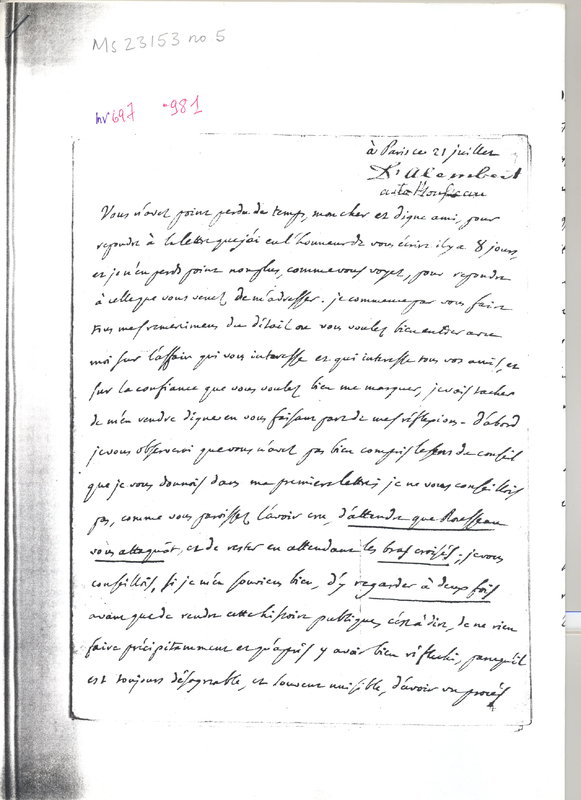 Ms 23153 no 5
inv 697 -981
à Paris ce 21 juillet
D'Alembert
Vous n'avez point perdu de temps, mon cher et digne ami, pour
repondre à la lettre que j'ai eu l'honneur de vous écrire il y a 8 jours,
et je n'en perds point non plus, comme vous voyez, pour repondre
à celle que vous venez de m'adresser. je commence par vous faire
tous mes remercimens du détail où vous voulez bien entrer avec
moi sur l'affaire qui vous interesse et qui interesse tous vos amis, et
sur la confiance que vous voulez bien me marquer, je vais tacher
de m'en rendre digne en vous faisant part de mes réflexions. d'abord
je vous observerai que vous n'avez pas bien compris le sens du conseil
que je vous donnois dans ma premiere lettre; je ne vous conseillois
pas, comme vous paroissez l'avoir cru, d'attendre que Rousseau
vous attaquât, et de rester en attendant les bras croisés; je vous
conseillois, si je m'en souviens bien, d'y regarder à deux fois
avant que de rendre cette histoire publique, c'est à dire, de ne rien
faire précipitamment et qu'après y avoir bien réflechi, parcequ'il
est toujours désagréable, et souvent nuisible, d'avoir un procès